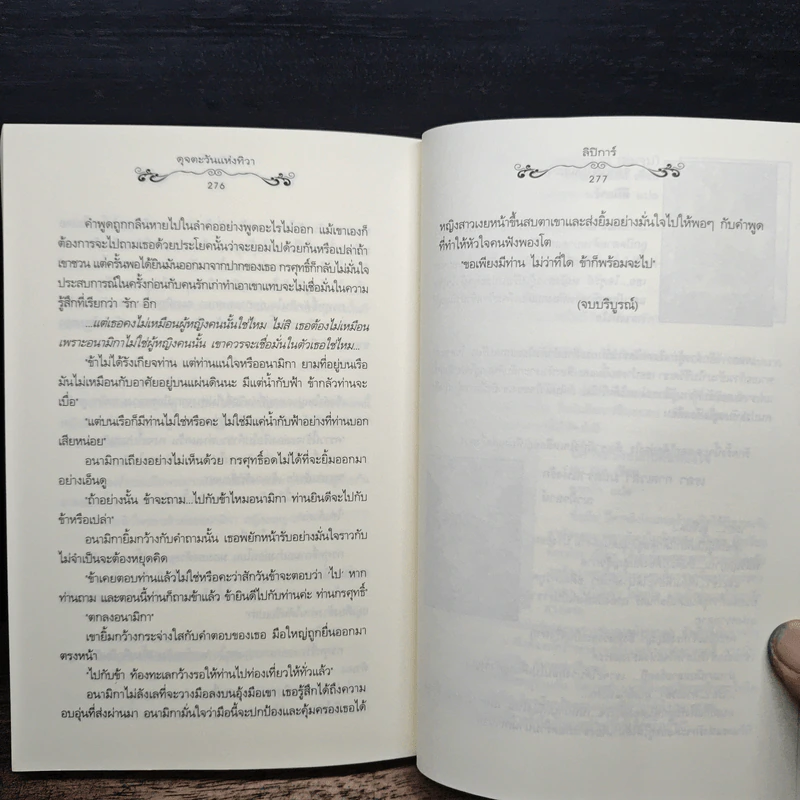 ดุจตะวันแห่งทิวา
276
คำพูดถูกกลืนหายไปในลำคออย่างพูดอะไรไม่ออก แม้เขาเองก็
ต้องการจะไปถามเธอด้วยประโยคนั้นว่าจะยอมไปด้วยกันหรือเปล่าถ้า
เขาชวน แต่ครั้นพอได้ยินมันออกมาจากปากของเธอ กรศุทธิ์ก็กลับไม่มั่นใจ
ประสบการณ์ในครั้งก่อนกับคนรักเก่าทำเอาเขาแทบจะไม่เชื่อมั่นในความ
รู้สึกที่เรียกว่า 'รัก' อีก
...แต่เธอคงไม่เหมือนผู้หญิงคนนั้นใช่ไหม ไม่สิ เธอต้องไม่เหมือน
เพราะอนามิกาไม่ใช่ผู้หญิงคนนั้น เขาควรจะเชื่อมั่นในตัวเธอใช่ไหม...
"ข้าไม่ได้รังเกียจท่าน แต่ท่านแน่ใจหรืออนามิกา ยามที่อยู่บนเรือ
มันไม่เหมือนกับอาศัยอยู่บนแผ่นดินนะ มีแต่น้ำกับฟ้า ข้ากลัวท่านจะ
เบื่อ"
"แต่บนเรือก็มีท่านไม่ใช่หรือคะ ไม่ใช่มีแค่น้ำกับฟ้าอย่างที่ท่านบอก
เสียหน่อย"
อนามิกาเถียงอย่างไม่เห็นด้วย กรศุทธิ์อดไม่ได้ที่จะยิ้มออกมา
อย่างเอ็นดู
"ถ้าอย่างนั้น ข้าจะถาม...ไปกับข้าไหมอนามิกา ท่านยินดีจะไปกับ
ข้าหรือเปล่า"
อนามิกายิ้มกว้างกับคำถามนั้น เธอพยักหน้ารับอย่างมั่นใจราวกับ
ไม่จำเป็นจะต้องหยุดคิด
"ข้าเคยตอบท่านแล้วไม่ใช่หรือคะว่าสักวันข้าจะตอบว่า 'ไป' หาก
ท่านถาม และตอนนี้ท่านก็ถามข้าแล้ว ข้ายินดีไปกับท่านค่ะ ท่านกรศุทธิ์"
"ตกลงอนามิกา"
เขายิ้มกว้างกระจ่างใสกับคำตอบของเธอ มือใหญ่ถูกยื่นออกมา
ตรงหน้า
"ไปกับข้า ท้องทะเลกว้างรอให้ท่านไปท่องเที่ยวให้ทั่วแล้ว"
อนามิกาไม่ลังเลที่จะวางมือลงบนอุ้งมือเขา เธอรู้สึกได้ถึงความ
อบอุ่นที่ส่งผ่านมา อนามิกามั่นใจว่ามือนี้จะปกป้องและคุ้มครองเธอได้
ลิปิการ์
277
หญิงสาวเงยหน้าขึ้นสบตาเขาและส่งยิ้มอย่างมั่นใจไปให้พอๆ กับคำพูด
ที่ทำให้หัวใจคนฟังพองโต
"ขอเพียงมีท่าน ไม่ว่าที่ใด ข้าก็พร้อมจะไป"
(จบบริบูรณ์)